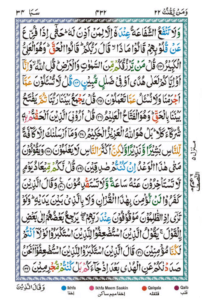 وَمَنْ يَّقْنُتْ ٢٢ ٤٣٢ سَبَا ٣٤
وَلَا تَنْفَعُ الشَّفَاعَةُ عِنْدَهٗۤ اِلَّا لِمَنْ اَذِنَ لَهٗ ؕ حَتّٰۤى اِذَا فُزِّعَ
عَنْ قُلُوْبِهِمْ قَالُوْا مَاذَا ۙ قَالَ رَبُّكُمْ ؕ قَالُوا الْحَقَّ ۚ وَهُوَ الْعَلِىُّ
الْكَبِيْرُ قُلْ مَنْ يَّرْزُقُكُمْ مِّنَ السَّمٰوٰتِ وَالْاَرْضِ ؕ قُلِ اللّٰهُ ۙ وَاِنَّاۤ
اَوْ اِيَّاكُمْ لَعَلٰى هُدًى اَوْ فِىْ ضَلٰلٍ مُّبِيْنٍ قُلْ لَّا تُسْـَٔلُوْنَ عَمَّاۤ
اَجْرَمْنَا وَلَا نُسْـَٔلُ عَمَّا تَعْمَلُوْنَ قُلْ يَجْمَعُ بَيْنَنَا رَبُّنَا ثُمَّ يَفْتَحُ
بَيْنَنَا بِالْحَقِّ ؕ وَهُوَ الْفَتَّاحُ الْعَلِيْمُ قُلْ اَرُوْنِىَ الَّذِيْنَ اَلْحَقْتُمْ بِهٖ
شُرَكَآءَ كَلَّا ؕ بَلْ هُوَ اللّٰهُ الْعَزِيْزُ الْحَكِيْمُ وَمَاۤ اَرْسَلْنٰكَ اِلَّا كَآفَّةً
لِّلنَّاسِ بَشِيْرًا وَّنَذِيْرًا وَّلٰكِنَّ اَكْثَرَ النَّاسِ لَا يَعْلَمُوْنَ وَيَقُوْلُوْنَ
مَتٰى هٰذَا الْوَعْدُ اِنْ كُنْتُمْ صٰدِقِيْنَ قُلْ لَّكُمْ مِّيْعَادُ يَوْمٍ
لَّا تَسْتَاْخِرُوْنَ عَنْهُ سَاعَةً وَّلَا تَسْتَقْدِمُوْنَ وَقَالَ الَّذِيْنَ
كَفَرُوْا لَنْ نُّؤْمِنَ بِهٰذَا الْقُرْاٰنِ وَلَا بِالَّذِىْ بَيْنَ يَدَيْهِ ؕ وَلَوْ
تَرٰۤى اِذِ الظّٰلِمُوْنَ مَوْقُوْفُوْنَ عِنْدَ رَبِّهِمْ ۖ يَرْجِعُ بَعْضُهُمْ اِلٰى
بَعْضِ الْقَوْلَ ۚ يَقُوْلُ الَّذِيْنَ اسْتُضْعِفُوْا لِلَّذِيْنَ اسْتَكْبَرُوْا لَوْلَاۤ اَنْتُمْ
لَكُنَّا مُؤْمِنِيْنَ قَالَ الَّذِيْنَ اسْتَكْبَرُوْا لِلَّذِيْنَ اسْتُضْعِفُوْۤا اَنَحْنُ
صَدَدْنٰكُمْ عَنِ الْهُدٰى بَعْدَ اِذْ جَآءَكُمْ بَلْ كُنْتُمْ مُّجْرِمِيْنَ
وَقَالَ الَّذِيْنَ
Ikhfa Ikhfa Meem Saakin Qalqala Qalb